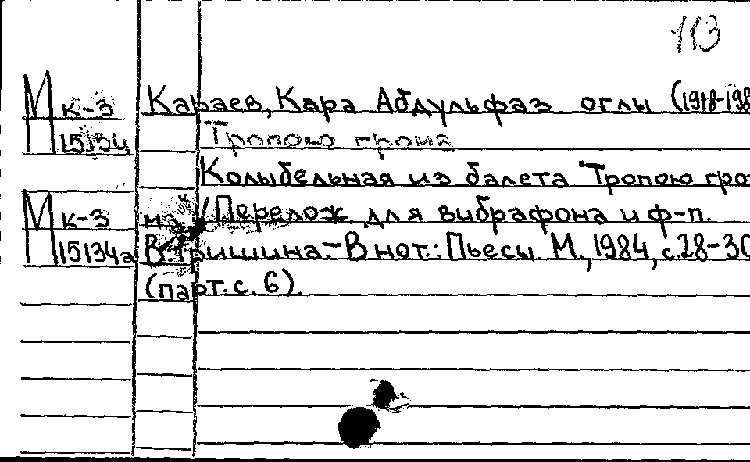 113
М к-3 Караев, Кара Абдульфаз оглы (1918-198
15134 Тропою грома
Колыбельная из балета "Тропою гро
М к-3 ма"/Перелож для вибрафона и ф-п.
15134а В. Гришина.- В нот.: Пьесы М., 1984, с.28-30
(парт. с. 6).